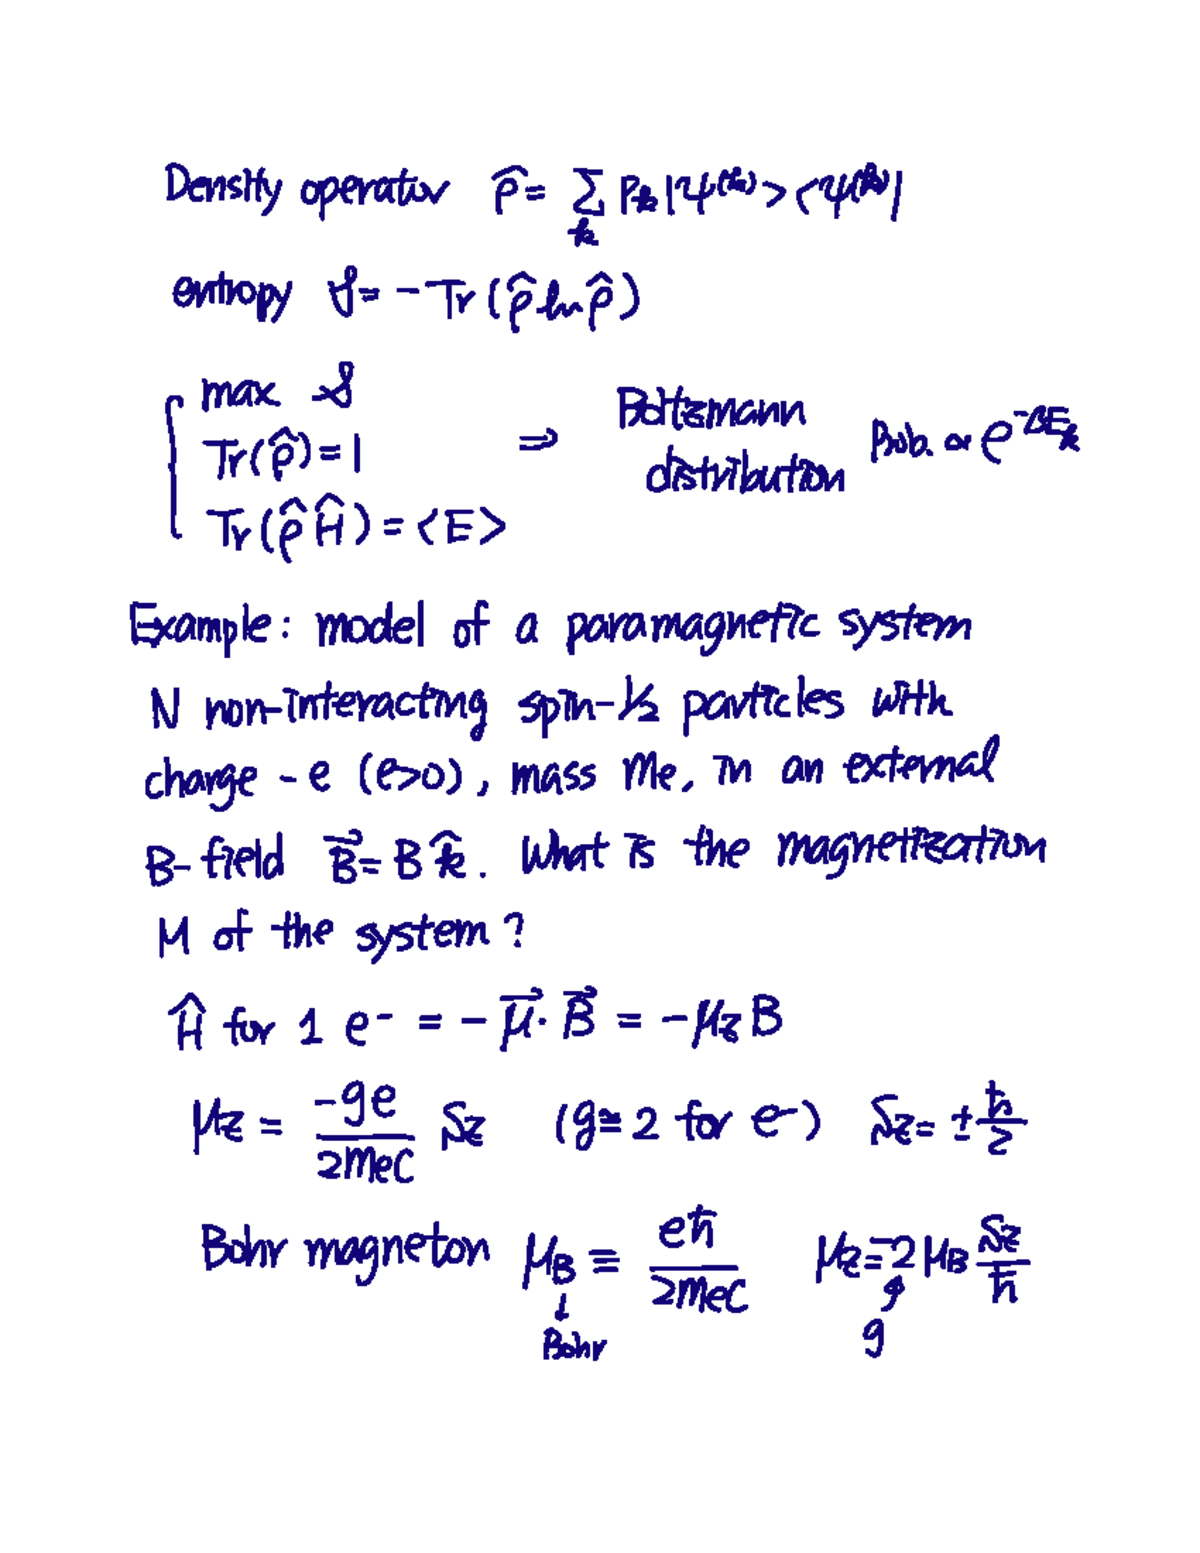 Density operator ρ̂ = Σ_k P_k |ψ^(k)> <ψ^(k)|
entropy S = - Tr (ρ̂ ln ρ̂)
max S
Tr(ρ̂) = 1 ⇒ Boltzmann distribution Prob. ∝ e^{-βE_k}
Tr(ρ̂ Ĥ) = <E>
Example: model of a paramagnetic system
N non-interacting spin-1/2 particles with
charge - e (e>0), mass me, in an external
B-field B⃗ = B k̂. What is the magnetization
M of the system?
Ĥ for 1 e⁻ = - μ⃗ · B⃗ = - μ_z B
μ_z = -ge / 2mec S_z (g ≅ 2 for e⁻) S_z = ± ħ/2
Bohr magneton μ_B ≡ eħ / 2mec μ_z = -2 μ_B S_z / ħ
↓
Bohr g